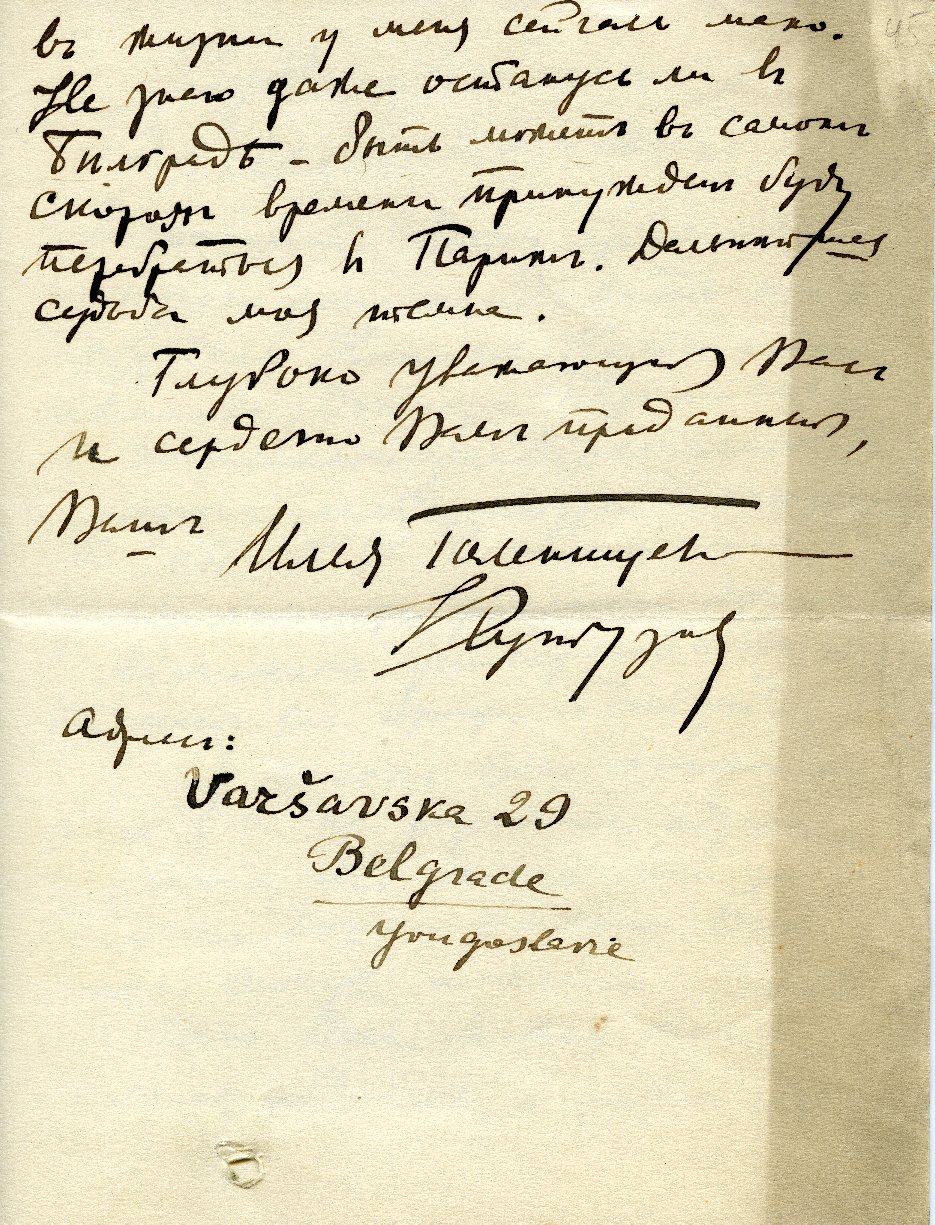 въ жизни у меня сейчасъ мало.
Не знаю даже останусь ли въ
Бѣлградѣ – быть можетъ въ самомъ
скоромъ времени принужденъ буду
перебраться въ Парижъ. Дальнѣйшая
судьба моя темна.
Глубоко уважающій Васъ
и сердечно Вамъ преданный,
Вашъ Илья Голенищевъ
Кутузовъ
Адресъ:
Varšavska 29
Belgrade
Yougoslavie
45